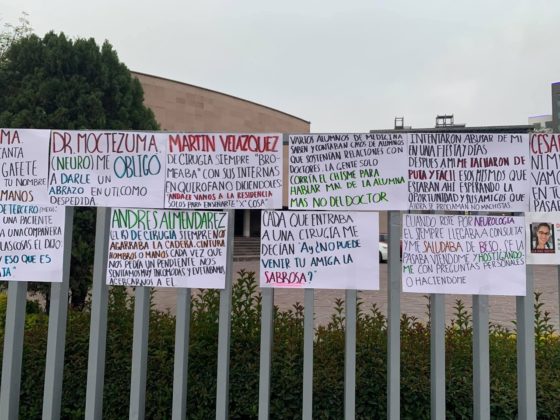 MA.
CANTA
GAFETE
TU NOMBRE
MANOS
DR MOCTEZUMA
(NEURO) ME OBLIGO
A DARLE UN
ABRAZO EN UTI COMO
DESPEDIDA.
MARTIN VELAZQUEZ
DE CIRUGIA SIEMPRE "BRO-
MEABA" CON SUS INTERNAS
EN QUIROFANO DICIENDOLES
ANDALE VAMOS A LA RESIDENCIA
SOLO PARA ENSEÑARTE "X COSA"
VARIOS ALUMNOS DE MEDICINA
SABEN Y CONTABAN CASOS DE ALUMNAS
QUE SOSTENIAN RELACIONES CON
DOCTORES. LA GENTE SOLO
CORRIA EL CHISME PARA
HABLAR MAL DE LA ALUMNA
MAS NO DEL DOCTOR
INTENTARON ABUSAR DE MI
EN UNA FIESTA, DIAS
DESPUES A MI ME TACHARON DE
PUTA Y FACIL. ESOS MISMOS QUE
ESTARAN AHI ESPERANDO LA
OPORTUNIDAD Y SUS AMIGOS QUE
SE PROCLAMAN NO MACHISTAS
CESA
NI A
EN
PAS
DE TERCERO
UNA PACIENTE
A UNA COMPAÑERA
LE DIJO
ESO QUE ES
ANDRES ALMENDAREZ
EL R1 DE CIRUGIA SIEMPRE NOS
AGARRABA LA CADERA, CINTURA
HOMBROS O MANOS CADA VEZ QUE
NOS PEDIA UN PENDIENTE. NOS
SENTIAMOS MUY INCOMODAS Y EVITABAMOS
ACERCARNOS A EL.
CADA QUE ENTRABA
A UNA CIRUGIA ME
DECIAN "AY ¿NO PUEDE
VENIR TU AMIGA LA
SABROSA?"
CUANDO ROTE POR NEUROLOGIA
EL SIEMPRE LLEGABA A CONSULTA
Y ME SALUDABA DE BESO, SE LA
PASABA VIENDOME Y HOSTIGANDO-
ME CON PREGUNTAS PERSONALES
O HACIENDOME